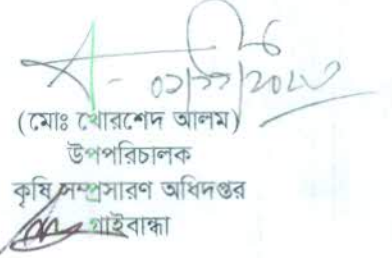 (মোঃ খোরশেদ আলম)
উপপরিচালক
কৃষি সম্প্রসারণ অধিদপ্তর
গাইবান্ধা